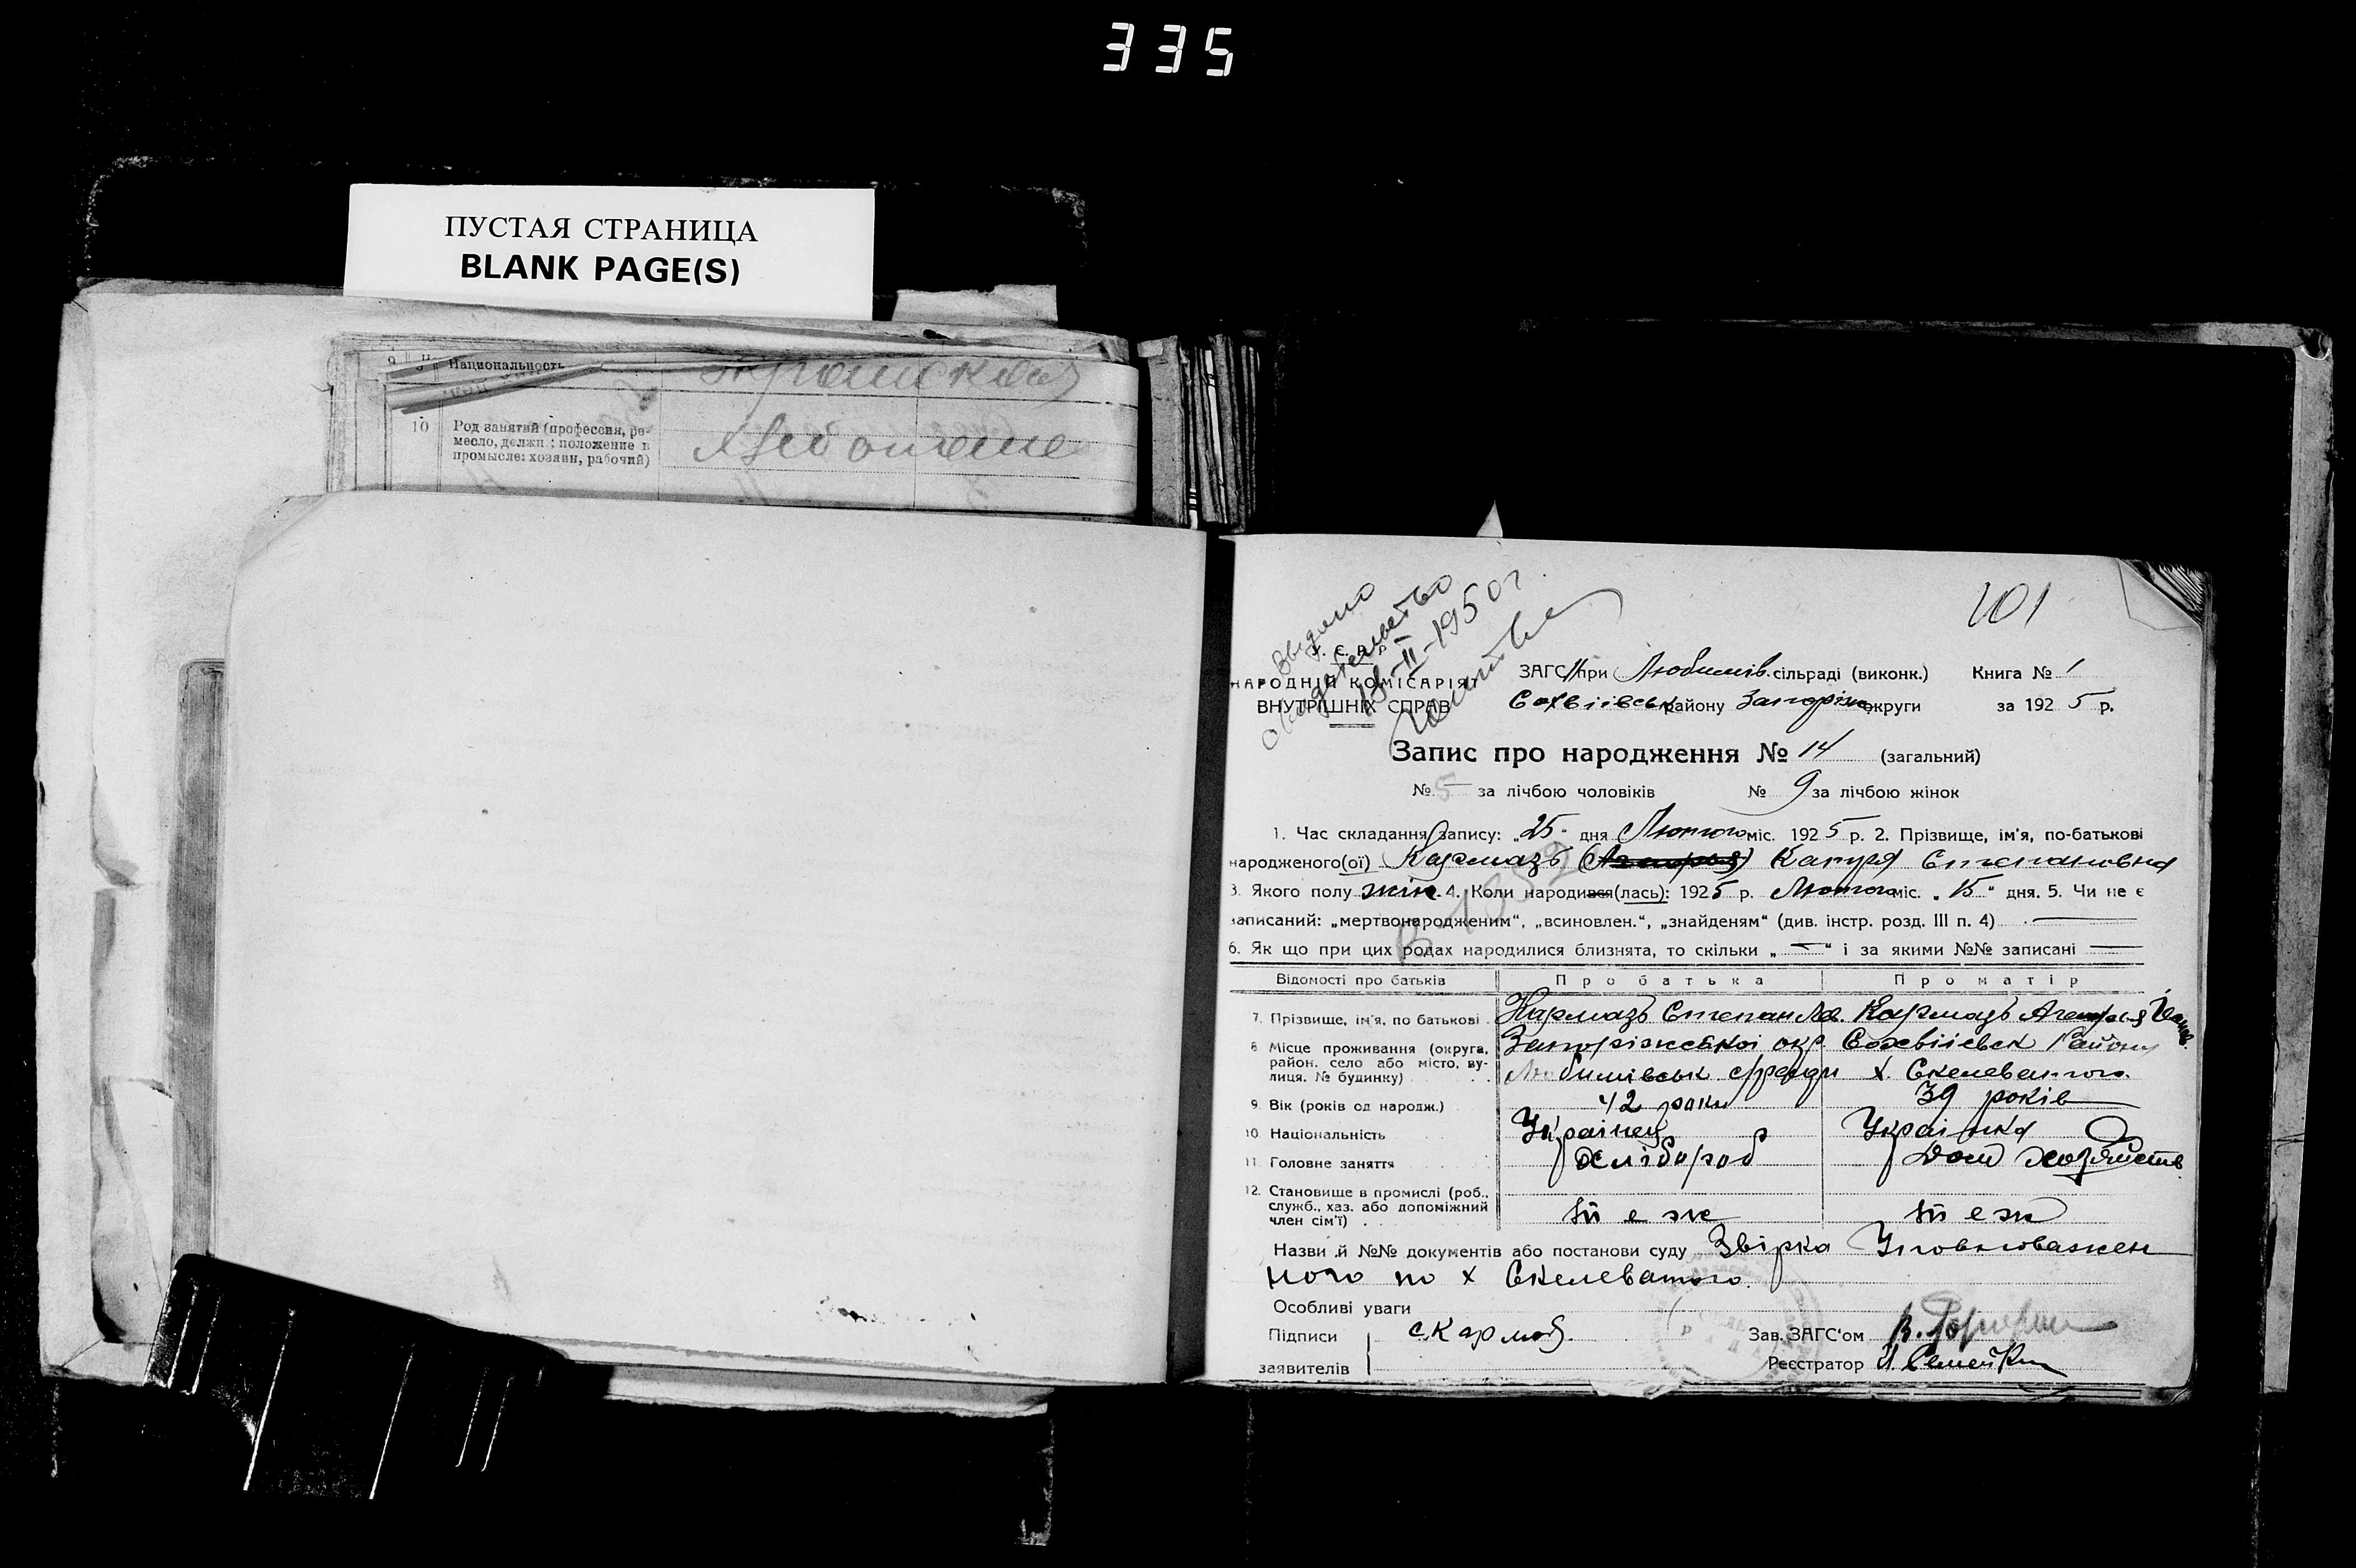 335
ПУСТАЯ СТРАНИЦА
BLANK PAGE(S)
9 Национальность
10 Род занятий (профессия, ре-
месло, должн.: положение в
промысле: хозяин, рабочий)
101
Выдано
свидетельство
18-II-1950 г.
НАРОДНІЙ КОМІСАРІЯТ
ВНУТРІШНІХ СПРАВ
ЗАГС при Любимів. сільраді (виконк.) Книга № 1
Софіївськ району Запоріж. округи за 1925 р.
Запис про народження № 14 (загальний)
№ 5 за лічбою чоловіків № 9 за лічбою жінок
1. Час складання запису: „25" дня Лютого міс. 1925 р. 2. Прізвище, ім'я, по-батькові
народженого(ої) Кармазь Степановна
3. Якого полу жін. 4. Коли народився(лась): 1925 р. Лютого міс. „15" дня. 5. Чи не є
записаний: „мертвонародженим", „всиновлен.", „знайденям" (див. інстр. розд. III п. 4)
6. Як що при цих родах народилися близнята, то скільки „—" і за якими №№ записані —
Відомості про батьків Про батька Про матір
7. Прізвище, ім'я, по батькові Кармазь Степан Кармазь
8 Місце проживання (округа, Запоріжської окр. Району
район, село або місто, ву- Любимівськ с/ради х. Скелеватого
лиця, № будинку)
9. Вік (років од народж.) 42 роки 39 років
10. Національність Українец Українка
11. Головне заняття Хлібороб Дом хозяйств
12. Становище в промислі (роб.,
служб., хаз. або допоміжний
член сім'ї) Тй е ж Тй е ж
Назви й №№ документів або постанови суду Звірка Уповноважен
ного по х Скелеватого.
Особливі уваги
Підписи С. Кармаз. Зав. ЗАГС'ом
заявителів Реєстратор